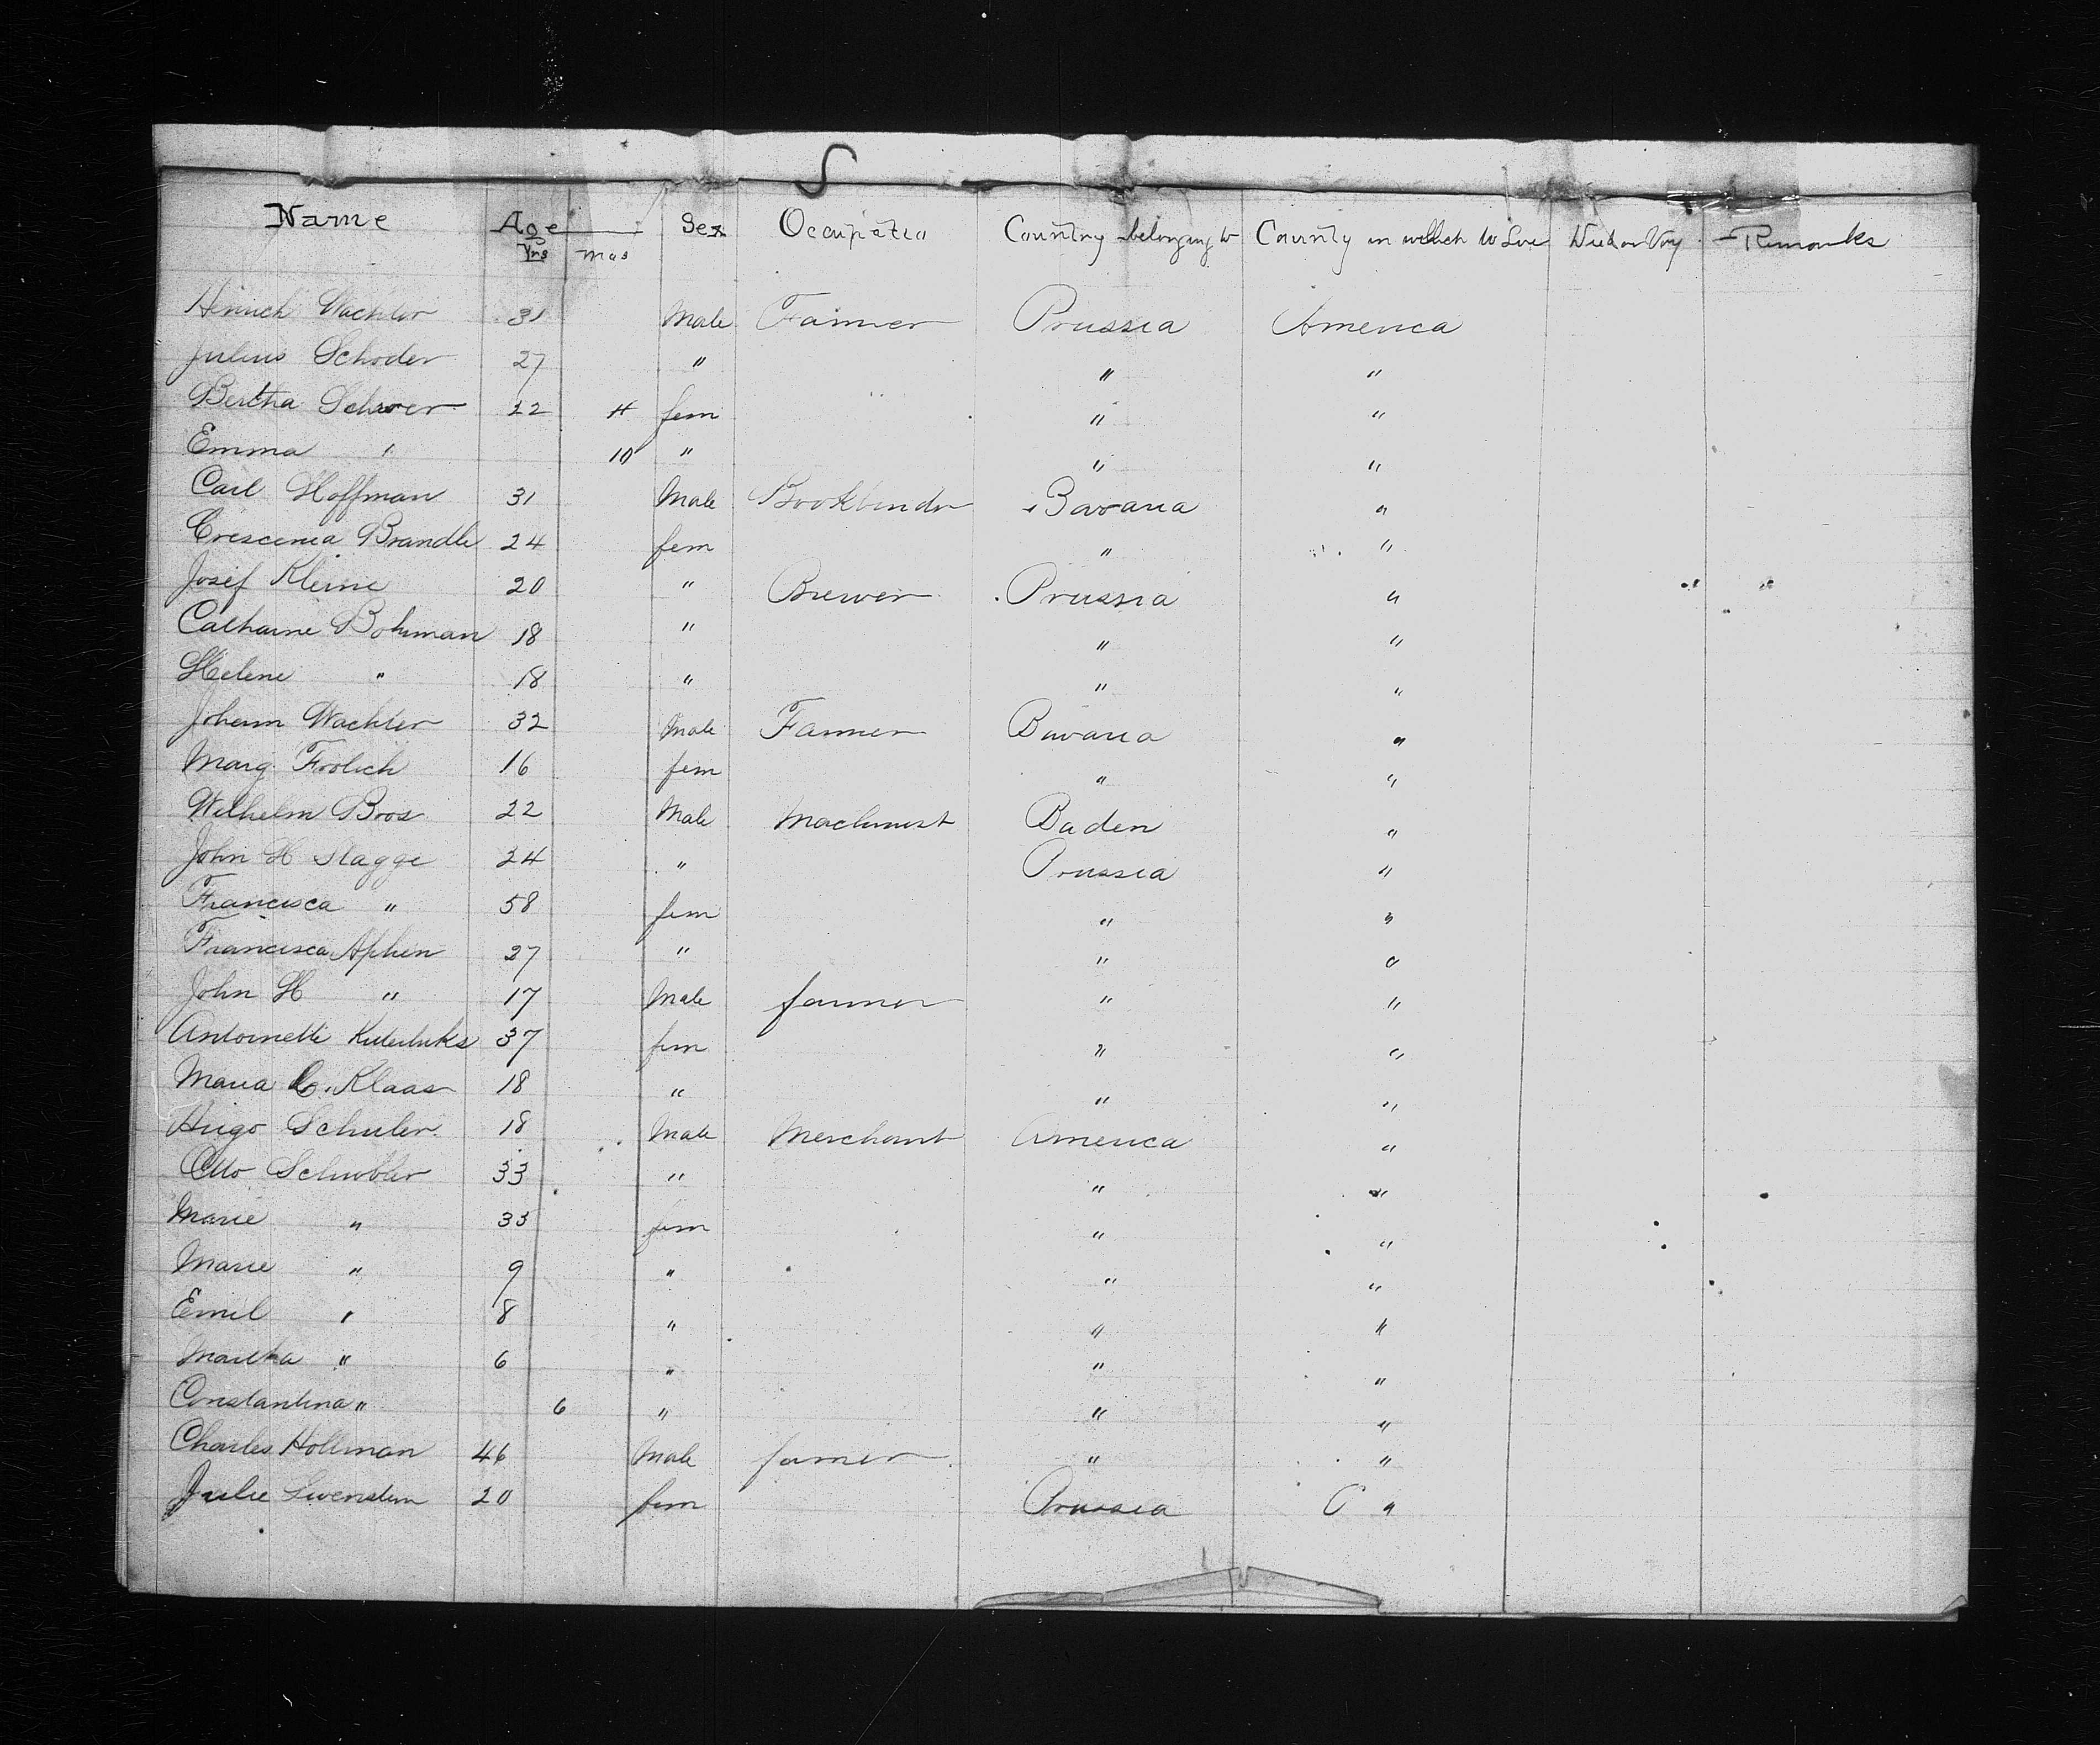 S
Name Age Yrs mos Sex Occupatio Country belonging to Country in which to Live Died on Voy Remarks
Heinrich Wachter 31 Male Farmer Prussia America
Julius Schoder 27 " " "
Bertha Schroer 22 4 fem " "
Emma " 10 " " "
Carl Hoffman 31 Male Bookbinder Bavaria "
Crescenia Brandle 24 fem " "
Josef Kleine 20 " Brewer Prussia "
Catharine Bohman 18 " " "
Helene " 18 " " "
Johann Wachter 32 Male Farmer Bavaria "
Marg Frolich 16 fem " "
Wilhelm Bros 22 Male Machinist Baden "
John H Stagge 24 " Prussia "
Francisca " 58 fem " "
Francisca 27 " " "
John H " 17 Male farmer " "
Antoinette 37 fem " "
Maria C. Klaas 18 " " "
Hugo Schuler 18 Male Merchant America "
Otto 33 " " "
Marie " 33 fem " "
Marie " 9 " " "
Emil " 8 " " "
Martha " 6 " " "
Constantina " 6 " " "
Charles Hollman 46 Male farmer " "
Julie 20 fem Prussia "